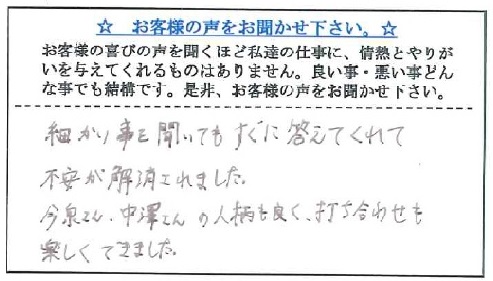 ☆ お客様の声をお聞かせ下さい。☆
お客様の喜びの声を聞くほど私達の仕事に、情熱とやりが
いを与えてくれるものはありません。良い事・悪い事どん
な事でも結構です。是非、お客様の声をお聞かせ下さい。
細かい事を聞いてもすぐに答えてくれて
不安が解消されました。
今泉さん、中澤さんの人柄も良く、打ち合わせも
楽しくできました。